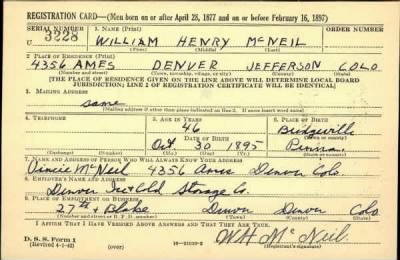 REGISTRATION CARD—(Men born on or after April 28, 1877 and on or before February 16, 1897)
SERIAL NUMBER 1. NAME (Print) ORDER NUMBER
U 3228 WILLIAM HENRY McNEIL
(First) (Middle) (Last)
2. PLACE OF RESIDENCE (Print)
4356 AMES DENVER JEFFERSON COLO
(Number and street) (Town, township, village, or city) (County) (State)
[THE PLACE OF RESIDENCE GIVEN ON THE LINE ABOVE WILL DETERMINE LOCAL BOARD
JURISDICTION; LINE 2 OF REGISTRATION CERTIFICATE WILL BE IDENTICAL]
3. MAILING ADDRESS
same
[Mailing address if other than place indicated on line 2. If same insert word same]
4. TELEPHONE 5. AGE IN YEARS 6. PLACE OF BIRTH
46 Bridgeville
DATE OF BIRTH (Town or county)
Oct. 30 1895 Penna.
(Exchange) (Number) (Mo.) (Day) (Yr.) (State or country)
7. NAME AND ADDRESS OF PERSON WHO WILL ALWAYS KNOW YOUR ADDRESS
McNeil 4356 Ames Denver Colo.
8. EMPLOYER'S NAME AND ADDRESS
Denver Ice & Cold Storage Co.
9. PLACE OF EMPLOYMENT OR BUSINESS
27th & Blake Denver Denver Colo
(Number and street or R. F. D. number) (Town) (County) (State)
I AFFIRM THAT I HAVE VERIFIED ABOVE ANSWERS AND THAT THEY ARE TRUE.
D. S. S. Form 1
(Revised 4-1-42) (over) 16—21630-2 W H McNeil.
(Registrant's signature)